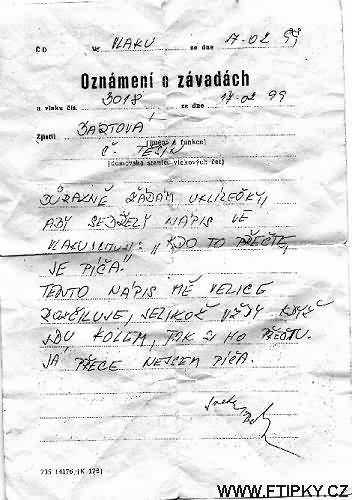 ČD Nr VLAKU ze dne 17.02 99
Oznámení o závadách
u vlaku čís. 3018 ze dne 17.02 99
Zjistil BARTOVÁ
(jméno a funkce)
Č. TĚŠÍN
(domovská stanice vlakových čet)
DŮRAZNĚ ŽÁDÁM UKLÍZEČKY,
ABY SEDŘELY NÁPIS VE
VLAKU „KDO TO PŘEČTE,
JE PÍČA."
TENTO NÁPIS MĚ VELICE
ROZČILUJE, JELIKOŽ VŽDY KDYŽ
JDU KOLEM, TAK SI HO PŘEČTU.
JÁ PŘECE NEJSEM PÍČA.
735 14176 (K 178)
WWW.FTIPKY.CZ